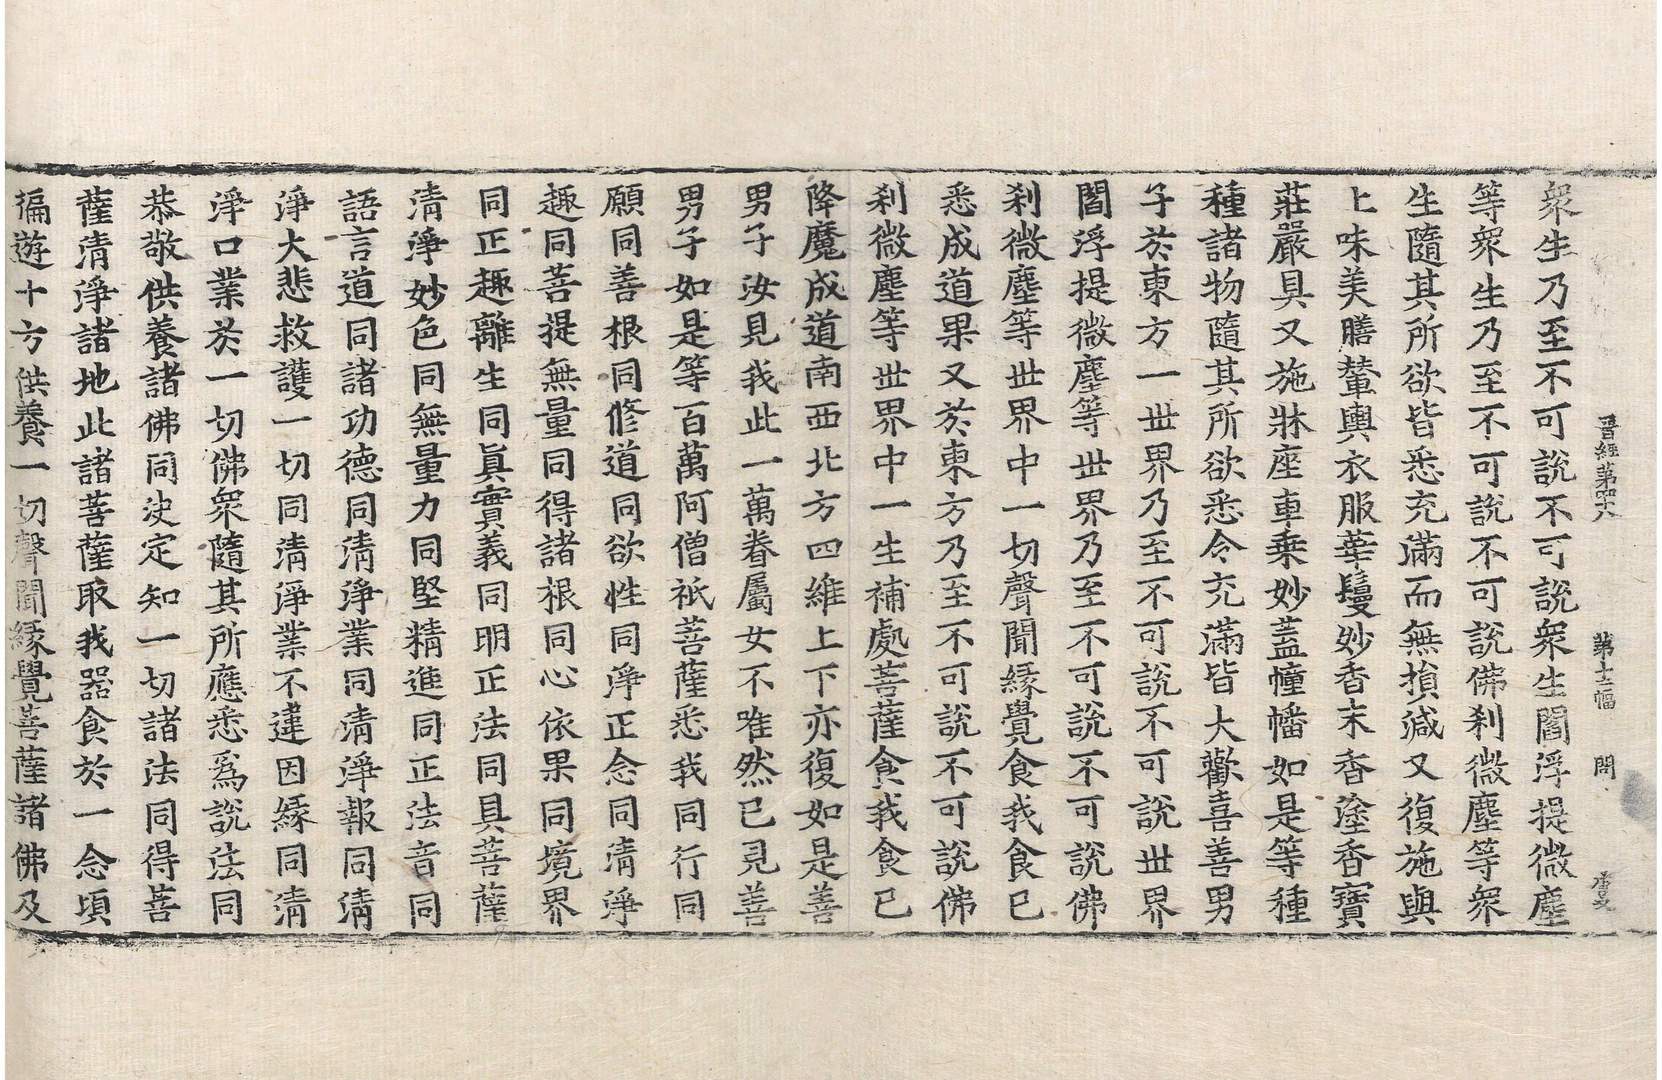 晉經第四十八 第十二幅 問
衆生乃至不可說不可說衆生閻浮提微塵
等衆生乃至不可說不可說佛刹微塵等衆
生隨其所欲皆悉充滿而無損減又復施與
上味美膳輦輿衣服華鬘妙香末香塗香寶
莊嚴具又施牀座車乗妙蓋幢幡如是等種
種諸物隨其所欲悉令充滿皆大歡喜善男
子於東方一世界乃至不可說不可說世界
閻浮提微塵等世界乃至不可說不可說佛
刹微塵等世界中一切聲聞緣覺食我食已
悉成道果又於東方乃至不可說不可說佛
刹微塵等世界中一生補處菩薩食我食已
降魔成道南西北方四維上下亦復如是善
男子汝見我此一萬眷屬女不唯然已見善
男子如是等百萬阿僧祇菩薩悉我同行同
願同善根同修道同欲性同淨正念同清淨
趣同菩提無量同得諸根同心依果同境界
同正趣離生同眞實義同明正法同具菩薩
清淨妙色同無量力同堅精進同正法音同
語言道同諸功德同清淨業同清淨報同清
淨大悲救護一切同清淨業不違因緣同清
淨口業於一切佛衆隨其所應悉爲說法同
恭敬供養諸佛同决定知一切諸法同得菩
薩清淨諸地此諸菩薩取我器食於一念頃
徧遊十方供養一切聲聞緣覺菩薩諸佛及